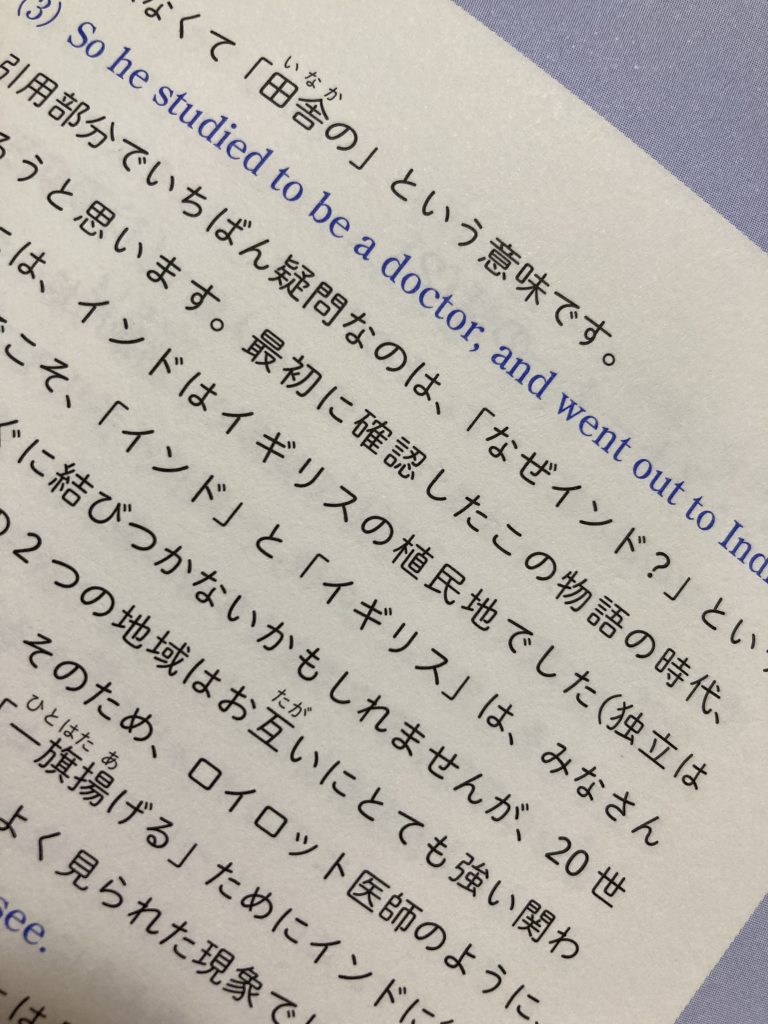 なくて「田舎の」という意味です。
(3) So he studied to be a doctor, and went out to Ind
引用部分でいちばん疑問なのは、「なぜインド?」という
ろうと思います。最初に確認したこの物語の時代、
には、インドはイギリスの植民地でした(独立は
でこそ、「インド」と「イギリス」は、みなさん
ぐに結びつかないかもしれませんが、20世
の2つの地域はお互いにとても強い関わ
そのため、ロイロット医師のように、
「一旗揚げる」ためにインドに
よく見られた現象で
see.